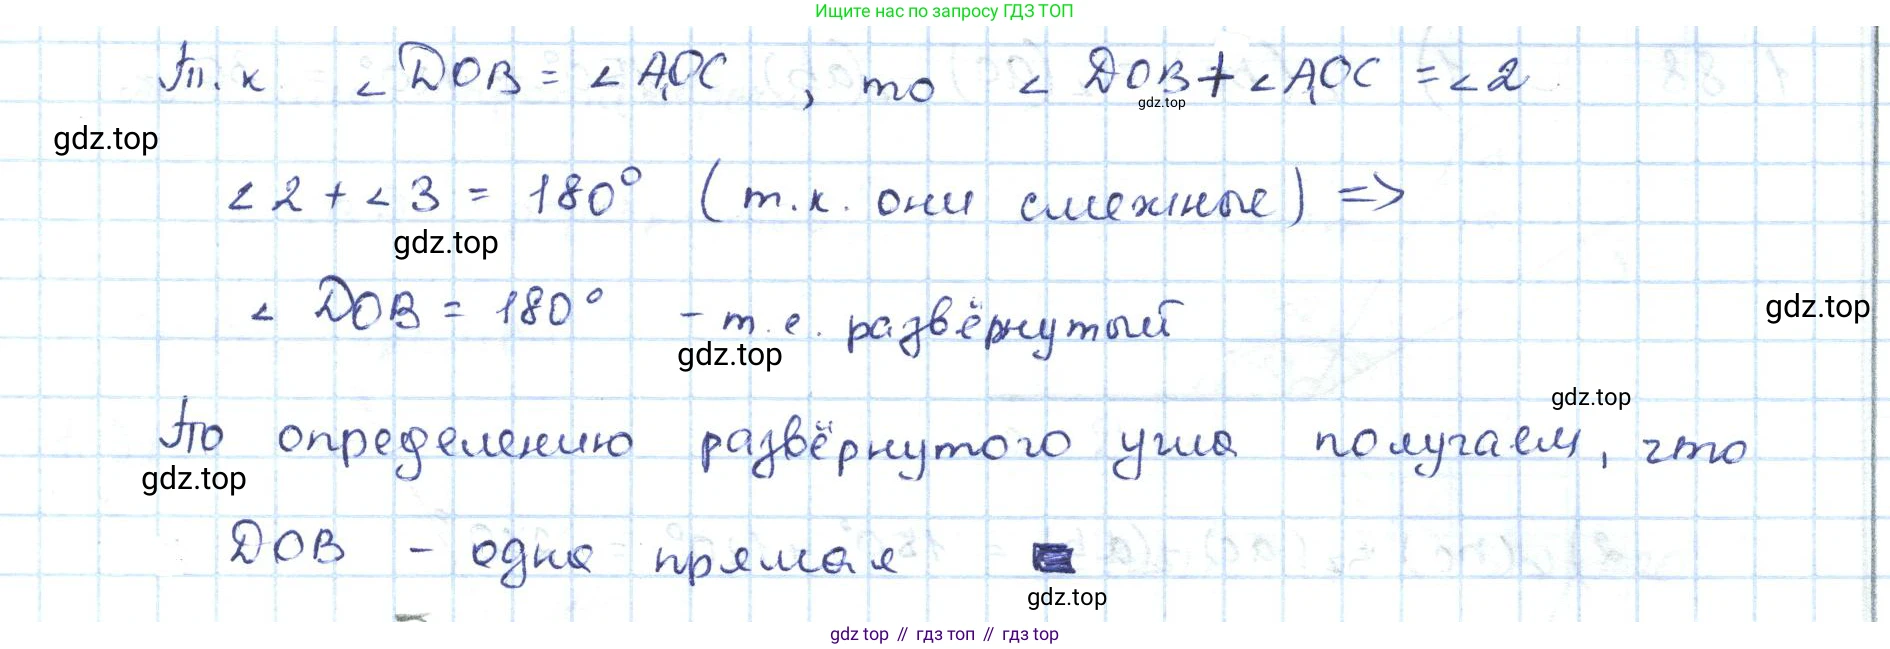 Ищите нас по запросу ГДЗ ТОП
Т.к ∠DOB = ∠AOC, то ∠DOB + ∠AOC = ∠2
gdz.top
gdz.top
∠2 + ∠3 = 180° (т.к. они смежные) =>
gdz.top
∠DOB = 180° - т.е. развёрнутый
gdz.top
gdz.top
gdz.top
По определению развёрнутого угла получаем, что
gdz.top
DOB - одна прямая
gdz.top
gdz top // гдз топ // гдз top